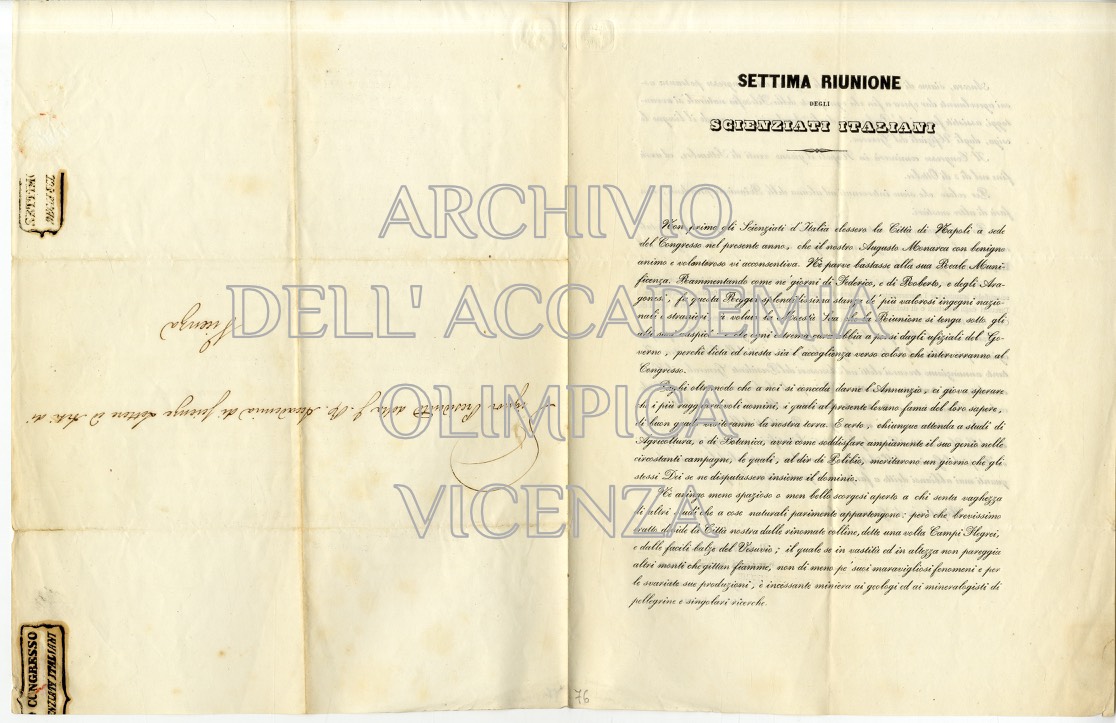 SETTIMA RIUNIONE
DEGLI
SCIENZIATI ITALIANI
Non prima gli Scienziati d'Italia elessero la Città di Napoli a sede
del Congresso nel presente anno, che il nostro Augusto Monarca con benigno
animo e volonteroso vi acconsentiva. Nè parve bastasse alla sua Reale Muni-
ficenza. Rammentando come ne' giorni di Federico, e di Roberto, e degli Ara-
gonesi, fu questa Reggia splendidissima stanza de' più valorosi ingegni nazio-
nali e stranieri, à voluto la Maestà Sua che la Riunione si tenga sotto gli
alti suoi auspicî e che ogni estrema cura abbia a porsi dagli ufiziali del Go-
verno, perchè lieta ed onesta sia l'accoglienza verso coloro che interverranno al
Congresso.
oltremodo che a noi si conceda darne l'Annunzio, ci giova sperare
che i più ragguardevoli uomini, i quali al presente levano fama del loro sapere,
di buon grado visiteranno la nostra terra. E certo, chiunque attenda a studî di
Agricoltura, o di Botanica, avrà come soddisfare ampiamente il suo genio nelle
circostanti campagne, le quali, al dir di Polibio, meritarono un giorno che gli
stessi Dei se ne disputassero insieme il dominio.
Nè aringo meno spazioso o men bello scorgesi aperto a chi senta vaghezza
di altri studî che a cose naturali parimente appartengono: però che brevissimo
tratto divide la Città nostra dalle rinomate colline, dette una volta Campi Flegrei,
e dalle facili balze del Vesuvio; il quale se in vastità ed in altezza non pareggia
altri monti che gittan fiamme, non di meno pe' suoi maravigliosi fenomeni e per
le svariate sue produzioni, è incessante miniera ai geologi ed ai mineralogisti di
pellegrine e singolari ricerche.
76
Signor Presidente della I. R. Accademia di Scienze Lettere ed Arti di
Vicenza
CONGRESSO
ARCHIVIO
DELL' ACCADEMIA
OLIMPICA
VICENZA